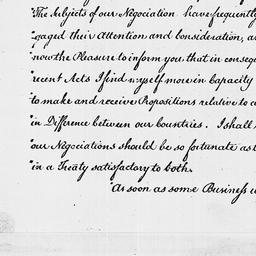 "The Subjects of our Negociation have frequently
"gaged their Attention and Consideration, a
"now the Pleasure to inform you that in conseq
"recent Acts I find myself more in Capacity
"to make and receive Propositions relative to
"in Difference between our Countries. I shall
"our Negociations should be so fortunate as t
"in a Treaty satisfactory to both.
"As soon as some Business